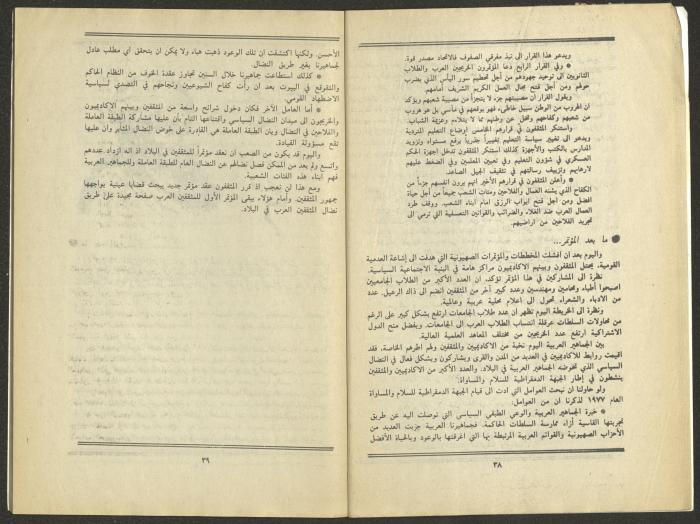 ويدعو هذا القرار الى نبذ مفرقي الصفوف فالاتحاد مصدر قوة.
* وفي القرار الرابع دعا المؤتمرون الخريجين العرب والطلاب
الثانويين الى توحيد جهودهم من أجل تحطيم سور اليأس الذي يضرب
حولهم ومن أجل فتح مجال العمل الكريم الشريف أمامهم.
ويقول القرار أن مصيبتهم جزء لا يتجزأ من مصيبة شعبهم ويؤكد
ان الهروب من الوطن سبيل خاطىء فهو يوقعهم في مآسي بل هو هروب
من شعبهم وكفاحهم وتخل عن وطنهم مما لا يتلائم وعزيمة الشباب.
واستنكر المثقفون في قرارهم الخامس اوضاع التعليم المتردية
ويدعو الى تغيير سياسة التعليم تغييراً جذرياً برفع مستواه وتزويد
المدارس بالكتب والأجهزة كذلك استنكر المثقفون تدخل اجهزة الحكم
العسكري في شؤون التعليم وفي تعيين المعلمين وفي الضغط عليهم
لارهابهم وتزييف رسالتهم في تثقيف الجيل الصاعد.
* وأعلن المثقفون في قرارهم الأخير انهم يرون انفسهم جزءاً من
الكفاح الذي يشنه العمال والفلاحين وفئات الشعب جميعاً من أجل حياة
افضل ومن أجل فتح ابواب الرزق امام أبناء الشعب. ووقف طرد
العمال العرب ضد الغلاء والضرائب والقوانين التعسفية التي ترمي الى
تجريد الفلاحين من اراضيهم.
● ما بعد المؤتمر...
واليوم بعد ان افشلت المخططات والمؤتمرات الصهيونية التي هدفت الى إشاعة العدمية
القومية، يحتل المثقفون وبينهم الاكاديميون مراكز هامة في البنية الاجتماعية السياسية.
نظرة الى المشاركين في هذا المؤتمر تؤكد، ان العدد الأكبر من الطلاب الجامعيين
اصبحوا أطباء ومحامين ومهندسين وعدد كبير آخر من المثقفين انضم الى ذاك الرعيل. عدد
من الادباء والشعراء تحول الى اعلام محلية عربية وعالمية.
ونظرة الى الخريطة اليوم تظهر أن عدد طلاب الجامعات ارتفع بشكل كبير على الرغم
من محاولات السلطات عرقلة انتساب الطلاب العرب الى الجامعات. وبفضل منح الدول
الاشتراكية ارتفع عدد الخريجين من مختلف المعاهد العلمية العالية.
بين الجماهير العربية اليوم نخبة من الاكاديميين والمثقفين ولهم اطرهم الخاصة. فقد
اقيمت روابط للاكاديميين في العديد من المدن والقرى ويشاركون وبشكل فعال في النضال
السياسي الذي تخوضه الجماهير العربية في البلاد. والعدد الأكبر من الاكاديميين والمثقفين
ينشطون في إطار الجبهة الدمقراطية للسلام والمساواة.
ولو حاولنا ان نبحث العوامل التي أدت الى قيام الجبهة الدمقراطية للسلام والمساواة
العام ١٩٧٧ لذكرنا ان من العوامل:
* خبرة الجماهير العربية والوعي الطبقي السياسي التي توصلت اليه عن طريق
تجربتها القاسية أزاء ممارسة السلطات الحاكمة. فجماهيرنا العربية جربت العديد من
الأحزاب الصهيونية والقوائم العربية المرتبطة بها التي اغرقتها بالوعود وبالحياة الأفضل
٣٨
الأحسن. ولكنها اكتشفت ان تلك الوعود ذهبت هباء ولا يمكن ان يتحقق اي مطلب عادل
لجماهيرنا بغير طريق النضال.
* كذلك استطاعت جماهيرنا خلال السنين تجاوز عقدة الخوف من النظام الحاكم
والتقوقع في البيوت بعد ان رأت كفاح الشيوعيين ونجاحهم في التصدي لسياسية
الاضطهاد القومي.
* أما العامل الآخر فكان دخول شرائح واسعة من المثقفين وبينهم الاكاديميون
والخريجون الى ميدان النضال السياسي واقتناعها التام بأن عليها مشاركة الطبقة العاملة
والفلاحين في النضال وبان الطبقة العاملة هي القادرة على خوض النضال المثابر وان عليها
تقع مسؤولة القيادة.
واليوم قد يكون من الصعب ان نعقد مؤتمراً للمثقفين في البلاد اذ انه ازداد عددهم
واتسع ولم يعد من الممكن فصل نضالهم عن النضال العام للطبقة العاملة وللجماهير العربية
فهم أبناء هذه الفئات الشعبية.
ومع هذا لن نعجب اذ كرر المثقفون عقد مؤتمر جديد يبحث قضايا عينية يواجهها
جمهور المثقفين. وأمام هؤلاء يبقى المؤتمر الأول للمثقفين العرب صفحة مجيدة على طريق
نضال المثقفين العرب في البلاد.
٣٩